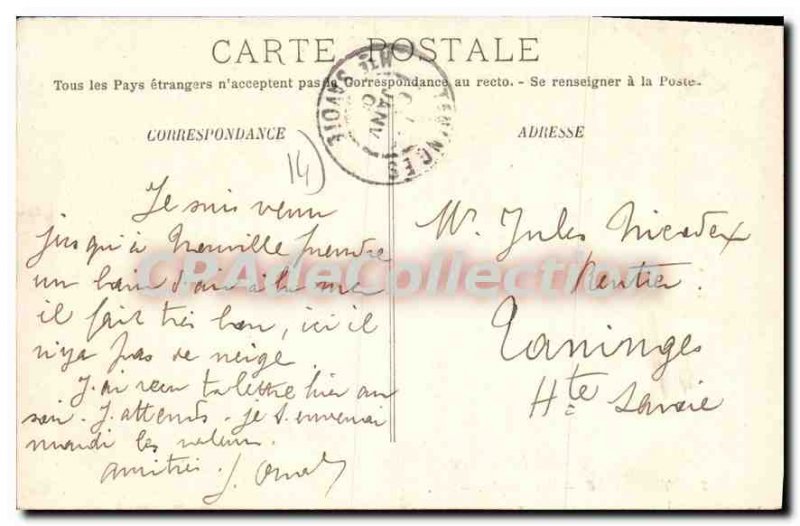 CARTE POSTALE
Tous les Pays étrangers n'acceptent pas de Correspondance au recto. - Se renseigner à la Poste.
CORRESPONDANCE
ADRESSE
TANINGES
JANV
HTE SAVOIE
14)
Je suis venu
jusqu'à prendre
un bain d'air à la mer
il fait très bon, ici il
n'y a pas de neige
J'ai reçu ta lettre hier au
soir. J'attends. je t'enverrai
mardi les valeurs.
amitiés. J.
Mr. Jules Nicodex
Rentier.
Taninges
Hte Savoie
CPAdeCollection